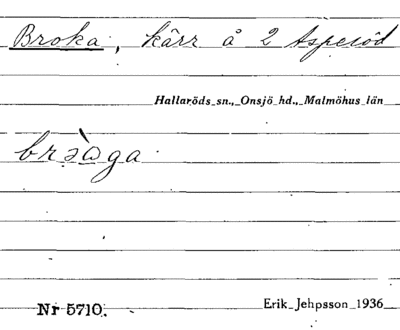 Broka, kärr å 2 Asperöd
Hallaröds sn., Onsjö hd., Malmöhus län
Nr 5710.
Erik Jehpsson 1936